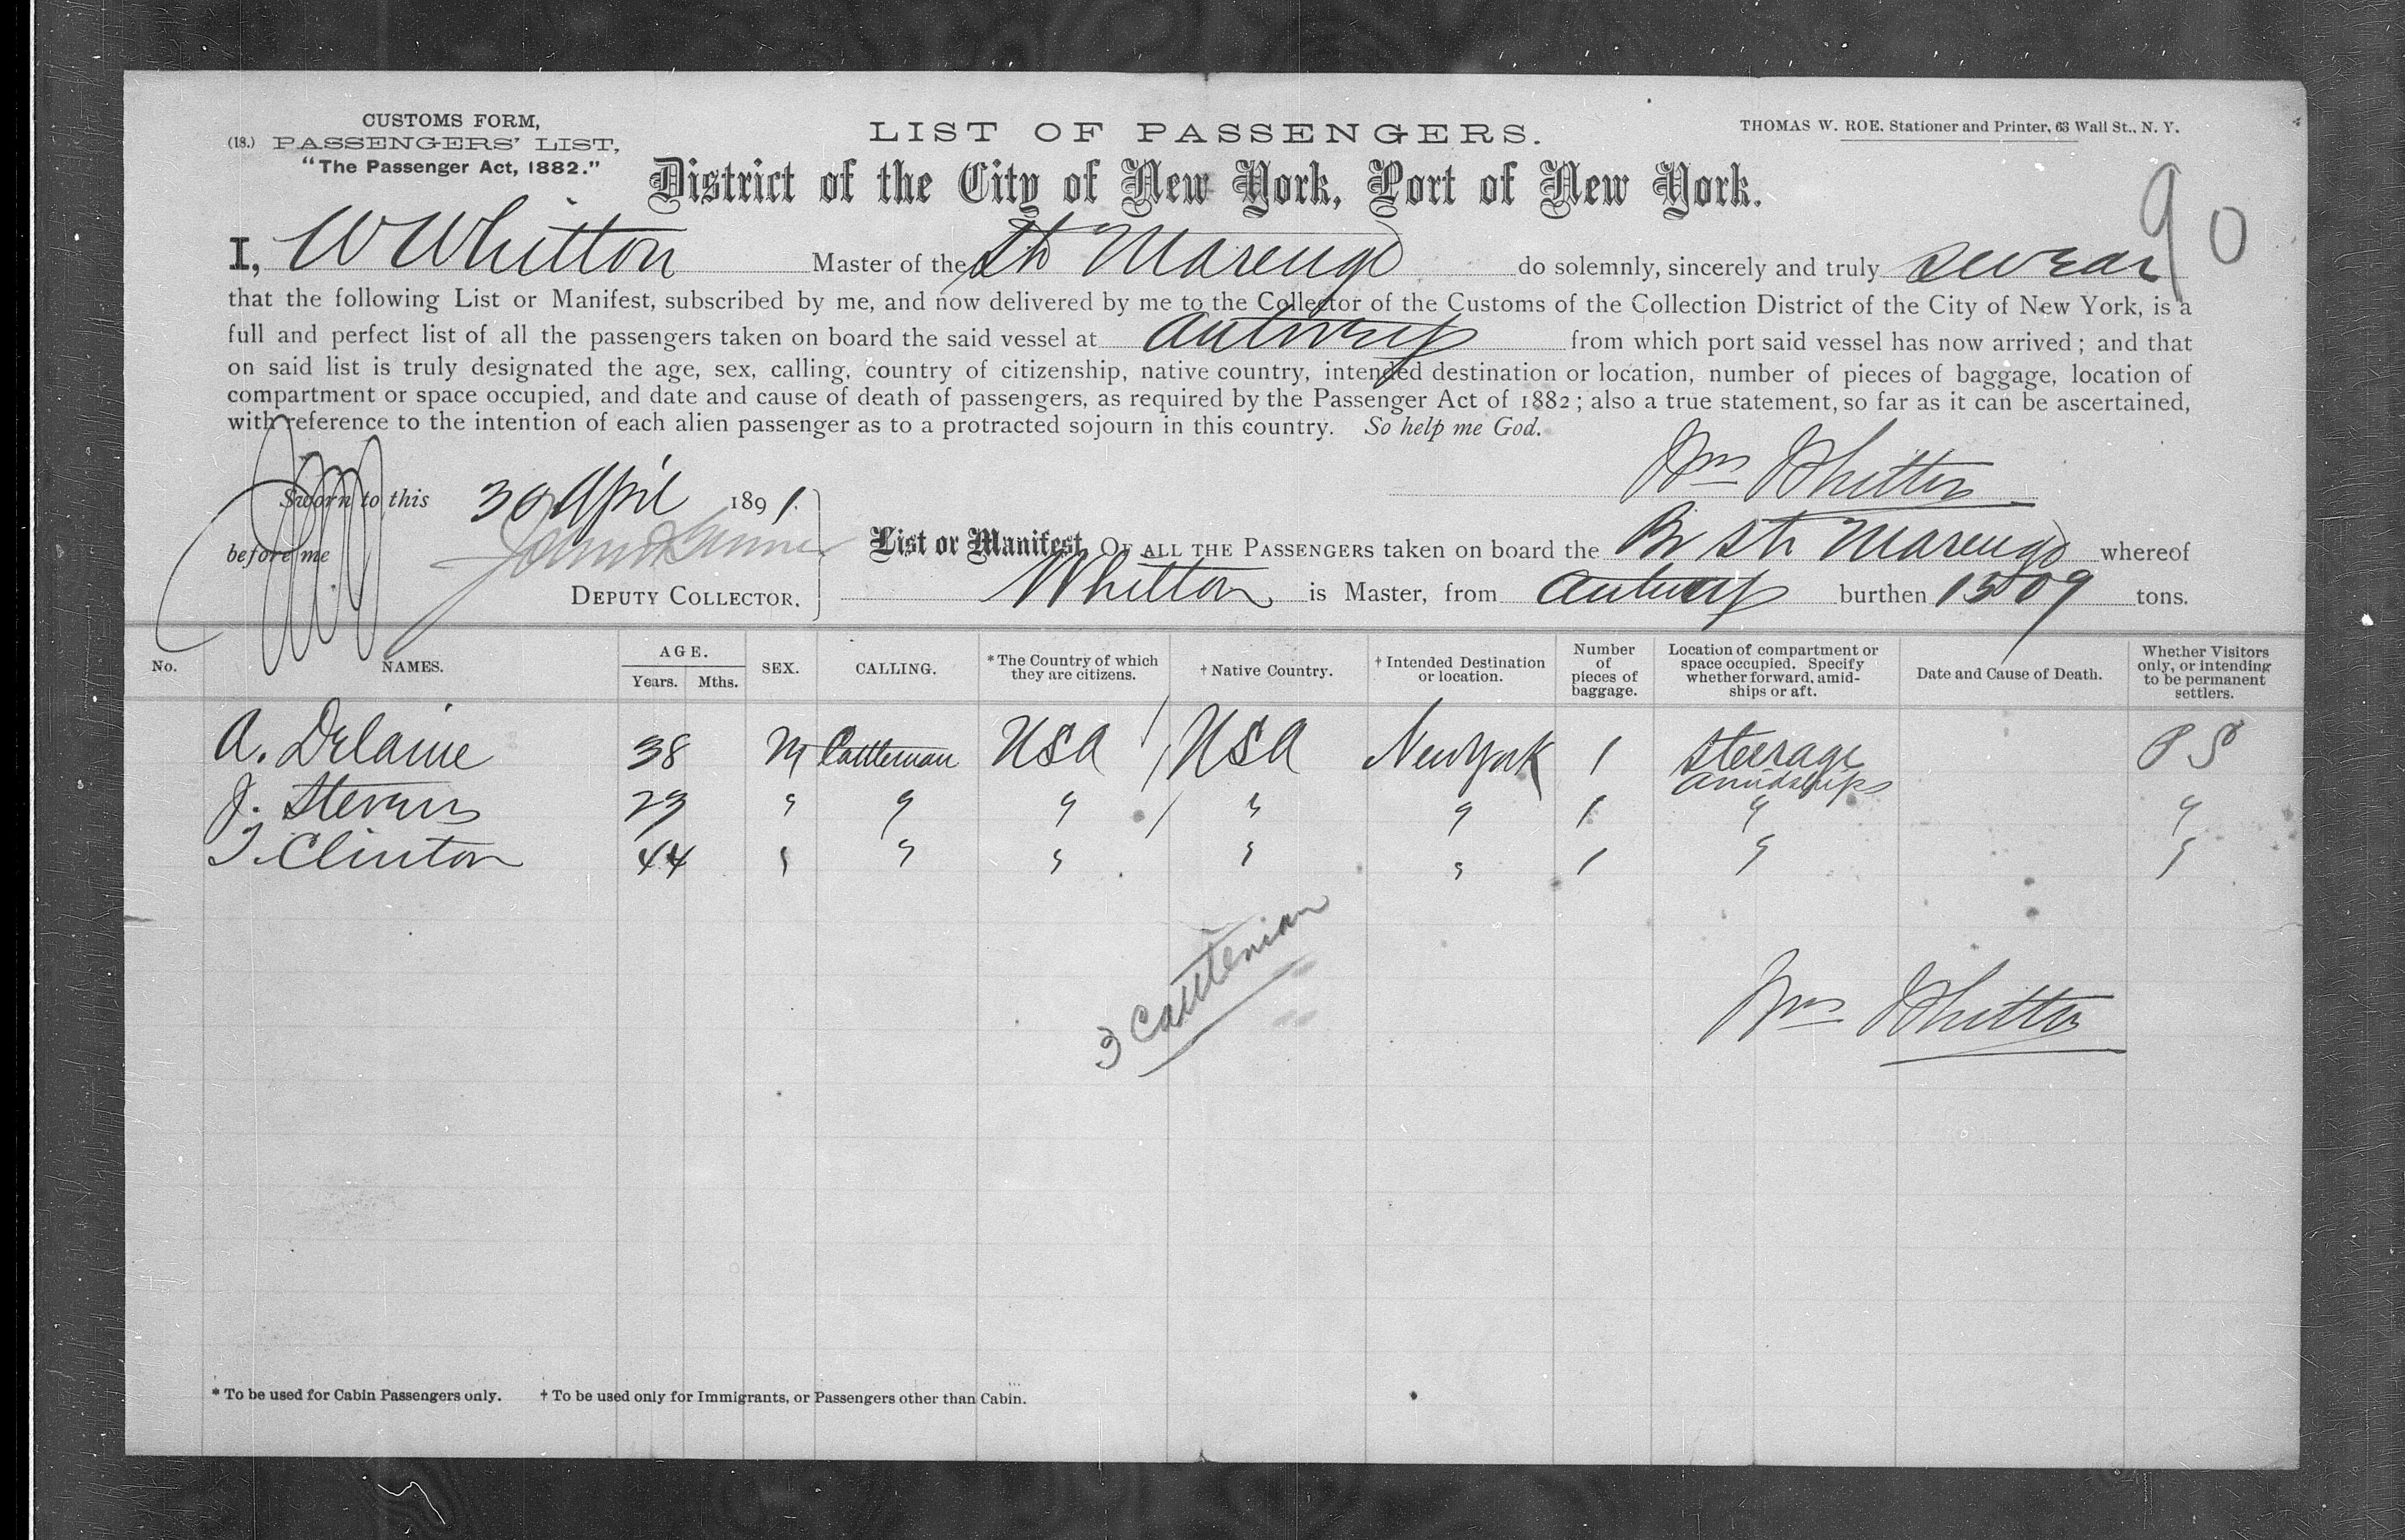 CUSTOMS FORM,
(18.) PASSENGERS' LIST,
"The Passenger Act, 1882."
LIST OF PASSENGERS.
THOMAS W. ROE. Stationer and Printer, 63 Wall St., N. Y.
District of the City of New York, Port of New York.
90
I, W Whitton Master of the Str Marengo do solemnly, sincerely and truly swear
that the following List or Manifest, subscribed by me, and now delivered by me to the Collector of the Customs of the Collection District of the City of New York, is a
full and perfect list of all the passengers taken on board the said vessel at Antwerp from which port said vessel has now arrived; and that
on said list is truly designated the age, sex, calling, country of citizenship, native country, intended destination or location, number of pieces of baggage, location of
compartment or space occupied, and date and cause of death of passengers, as required by the Passenger Act of 1882; also a true statement, so far as it can be ascertained,
with reference to the intention of each alien passenger as to a protracted sojourn in this country. So help me God.
Wm Whitton
Sworn to this 30 April 1891
before me
DEPUTY COLLECTOR.
List or Manifest OF ALL THE PASSENGERS taken on board the Br Str Marengo whereof
Whitton is Master, from Antwerp burthen 1509 tons.
No. NAMES. AGE. Years. Mths. SEX. CALLING. *The Country of which they are citizens. † Native Country. † Intended Destination or location. Number of pieces of baggage. Location of compartment or space occupied. Specify whether forward, amidships or aft. Date and Cause of Death. Whether Visitors only, or intending to be permanent settlers.
A. Delaine 38 M Cattleman USA / USA New York 1 Steerage amidships P S
J. Stevens 23 " " " / " " 1 " "
T. Clinton 44 " " " " " 1 " "
3 Cattlemen
Wm Whitton
* To be used for Cabin Passengers only. † To be used only for Immigrants, or Passengers other than Cabin.